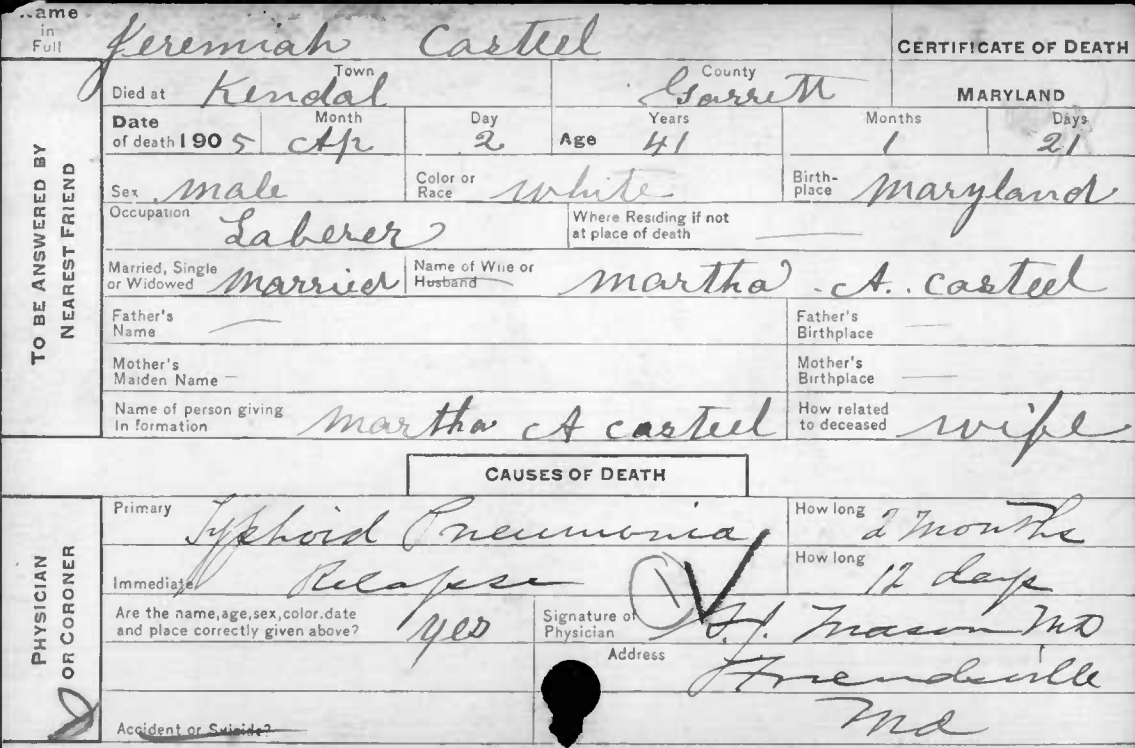 Name in Full Jeremiah Casteel
CERTIFICATE OF DEATH
TO BE ANSWERED BY NEAREST FRIEND
Died at Kendal Town Garrett County MARYLAND
Date of death 1905 Month Ap Day 2 Age Years 41 Months 1 Days 21
Sex male Color or Race white Birth-place Maryland
Occupation Laberer Where Residing if not at place of death —
Married, Single or Widowed Married Name of Wife or Husband Martha A. Casteel
Father's Name — Father's Birthplace —
Mother's Maiden Name — Mother's Birthplace —
Name of person giving In formation Martha A Casteel How related to deceased wife
CAUSES OF DEATH
PHYSICIAN OR CORONER
Primary Typhoid Pneumonia How long 2 Months
Immediate Relapse How long 12 days
Are the name, age, sex, color. date and place correctly given above? yes Signature of Physician 1 Mason MD
Address Friendsville
Md
Accident or Suicide?